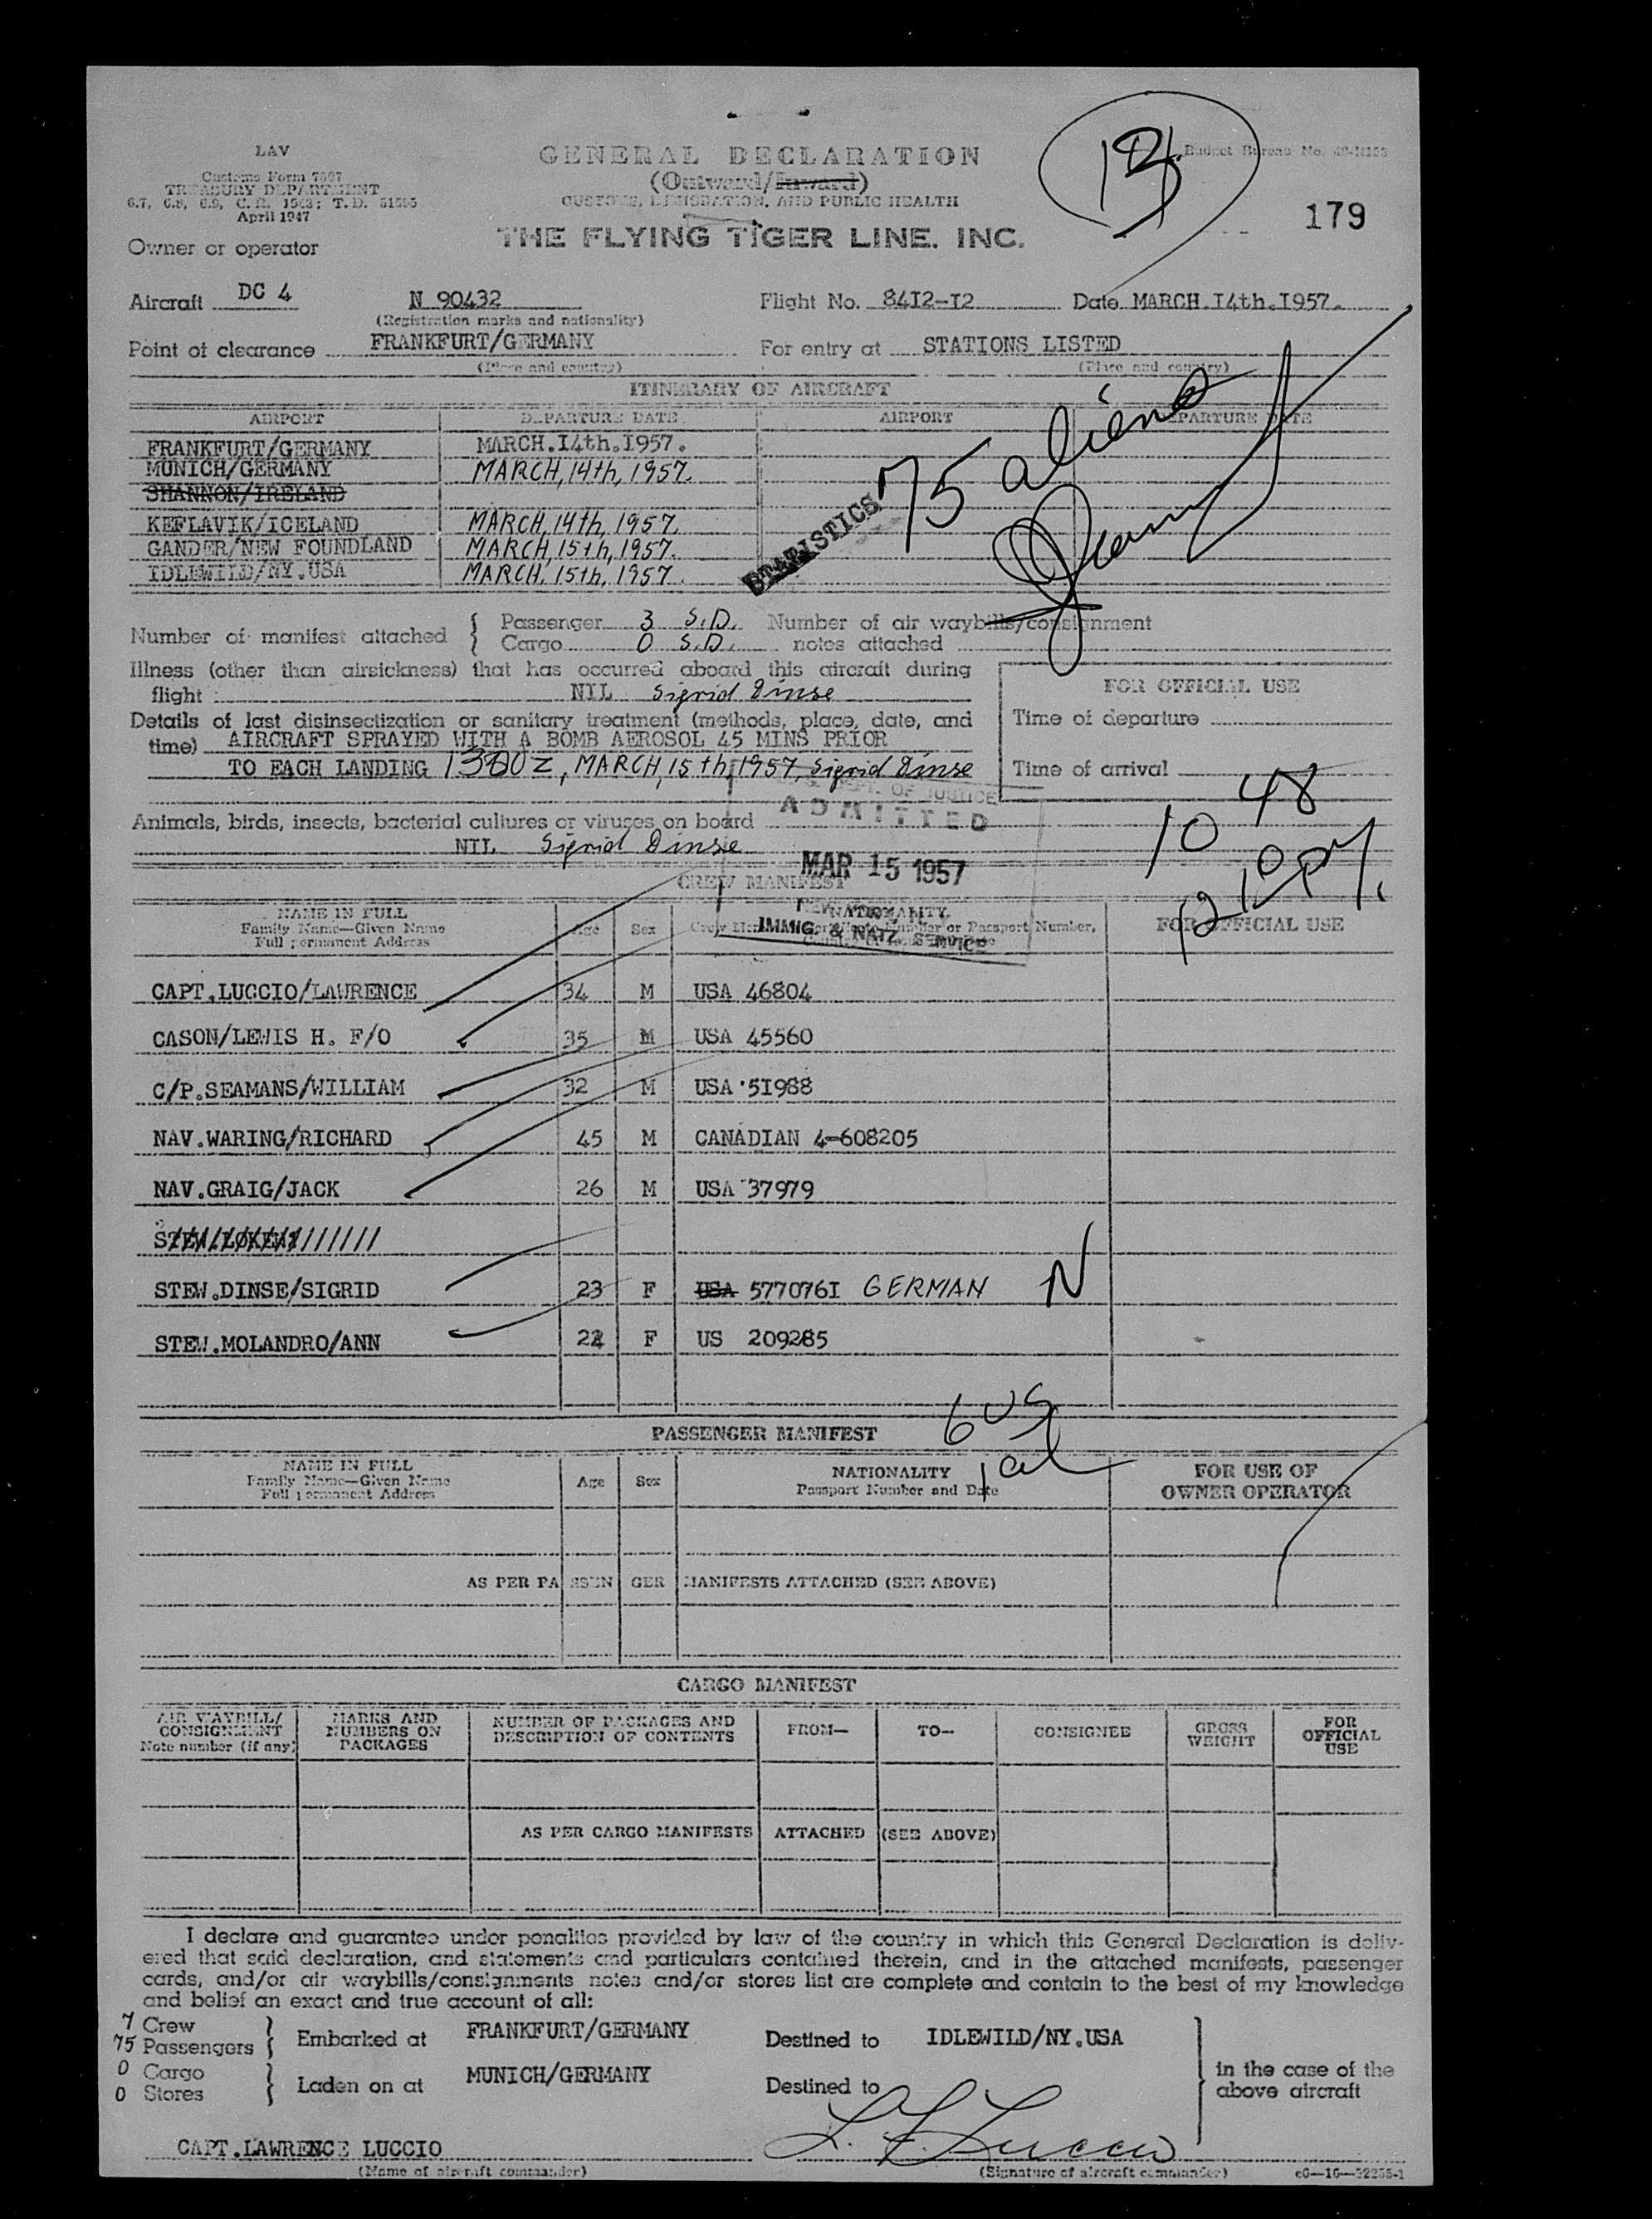 LAV
Customs Form 7507
TREASURY DEPARTMENT
6.7, 6.8, 6.9, C.R. 1943; T.D. 51595
April 1947
GENERAL DECLARATION
(Outward/Inward)
CUSTOMS, IMMIGRATION, AND PUBLIC HEALTH
Budget Bureau No.
179
Owner or operator THE FLYING TIGER LINE. INC.
Aircraft DC 4 N 90432 Flight No. 84I2-I2 Date MARCH.I4th.I957.
(Registration marks and nationality)
Point of clearance FRANKFURT/GERMANY For entry at STATIONS LISTED
(Place and country) (Place and country)
ITINERARY OF AIRCRAFT
AIRPORT DEPARTURE DATE AIRPORT DEPARTURE DATE
FRANKFURT/GERMANY MARCH.I4th.I957.
MUNICH/GERMANY MARCH,14th,1957.
SHANNON/IRELAND
KEFLAVIK/ICELAND MARCH,14th,1957.
GANDER/NEW FOUNDLAND MARCH,15th,1957.
IDLEWILD/NY.USA MARCH,15th,1957.
STATISTICS
75 aliens
Number of manifest attached { Passenger 3 S.D. Number of air waybills/consignment
Cargo 0 S.D. notes attached
Illness (other than airsickness) that has occurred aboard this aircraft during
flight NIL Sigrid Dinse
FOR OFFICIAL USE
Time of departure
Details of last disinsectization or sanitary treatment (methods, place, date, and
time) AIRCRAFT SPRAYED WITH A BOMB AEROSOL 45 MINS PRIOR
TO EACH LANDING 1300z, MARCH,15th,1957, Sigrid Dinse
Time of arrival
10 48
Animals, birds, insects, bacterial cultures or viruses on board
NIL Sigrid Dinse
U.S. DEPT. OF JUSTICE
ADMITTED
MAR 15 1957
IMMIG. & NATZ. SERVICE
CREW MANIFEST
NAME IN FULL
Family Name—Given Name
Full permanent Address
Age Sex NATIONALITY
FOR OFFICIAL USE
CAPT.LUCCIO/LAURENCE 34 M USA 46804
CASON/LEWIS H. F/O 35 M USA 45560
C/P.SEAMANS/WILLIAM 32 M USA 5I988
NAV.WARING/RICHARD 45 M CANADIAN 4-608205
NAV.GRAIG/JACK 26 M USA 37979
STEW.DINSE/SIGRID 23 F USA 577076I GERMAN N
STEW.MOLANDRO/ANN 22 F US 209285
6 US
1 al
PASSENGER MANIFEST
NAME IN FULL
Family Name—Given Name
Full permanent Address
Age Sex NATIONALITY
Passport Number and Date
FOR USE OF
OWNER OPERATOR
AS PER PASSENGER MANIFESTS ATTACHED (SEE ABOVE)
CARGO MANIFEST
AIR WAYBILL/
CONSIGNMENT
Note number (if any)
MARKS AND
NUMBERS ON
PACKAGES
NUMBER OF PACKAGES AND
DESCRIPTION OF CONTENTS
FROM— TO— CONSIGNEE
GROSS
WEIGHT
FOR
OFFICIAL
USE
AS PER CARGO MANIFESTS ATTACHED (SEE ABOVE)
I declare and guarantee under penalties provided by law of the country in which this General Declaration is deliv-
ered that said declaration, and statements and particulars contained therein, and in the attached manifests, passenger
cards, and/or air waybills/consignments notes and/or stores list are complete and contain to the best of my knowledge
and belief an exact and true account of all:
7 Crew
75 Passengers } Embarked at FRANKFURT/GERMANY Destined to IDLEWILD/NY.USA
0 Cargo
0 Stores } Laden on at MUNICH/GERMANY Destined to
in the case of the
above aircraft
CAPT.LAWRENCE LUCCIO L. F. Luccio
(Name of aircraft commander) (Signature of aircraft commander)